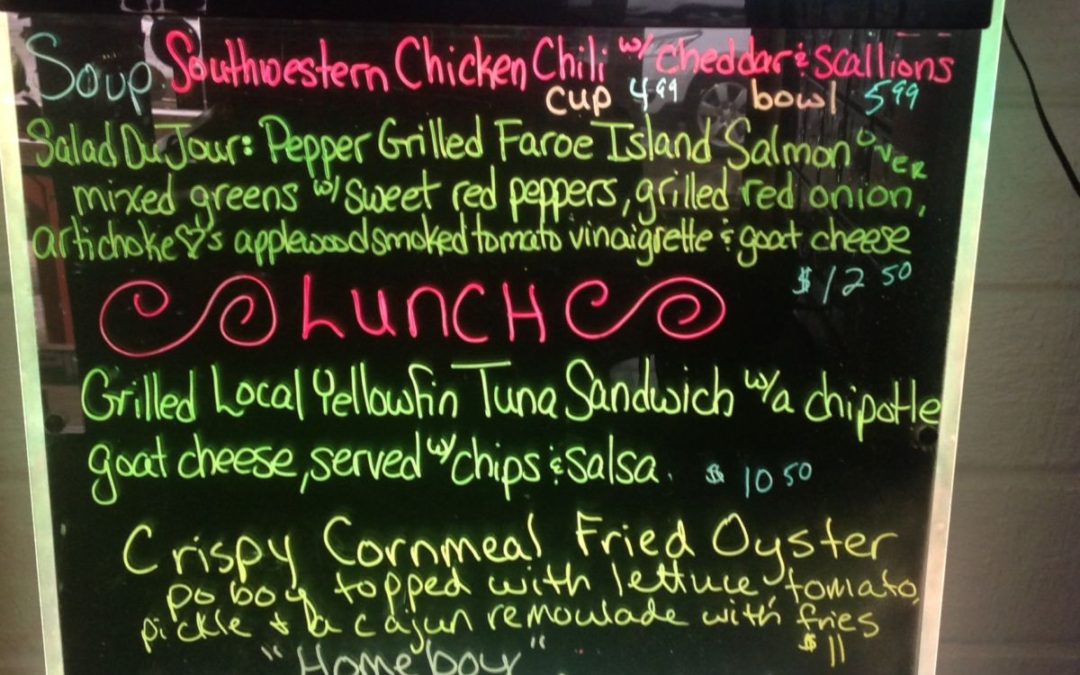 Soup Southwestern Chicken Chili w/ cheddar & scallions
cup 4.99 bowl 5.99
Salad Du Jour: Pepper Grilled Faroe Island Salmon OVER
mixed greens w/ sweet red peppers, grilled red onion,
artichoke ♡'s applewood smoked tomato vinaigrette & goat cheese
$12.50
LUNCH
Grilled Local Yellowfin Tuna Sandwich w/a chipotle
goat cheese, served w/ chips & salsa. $10.50
Crispy Cornmeal Fried Oyster
po boy topped with lettuce, tomato,
pickle & a cajun remoulade with fries
$11
"Homeboy"